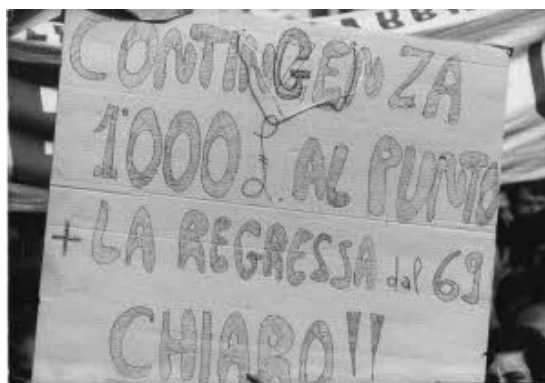 CONTINGENZA
1°000. AL PUNTO
+ LA REGRESSA dal 69
CHIARO!!